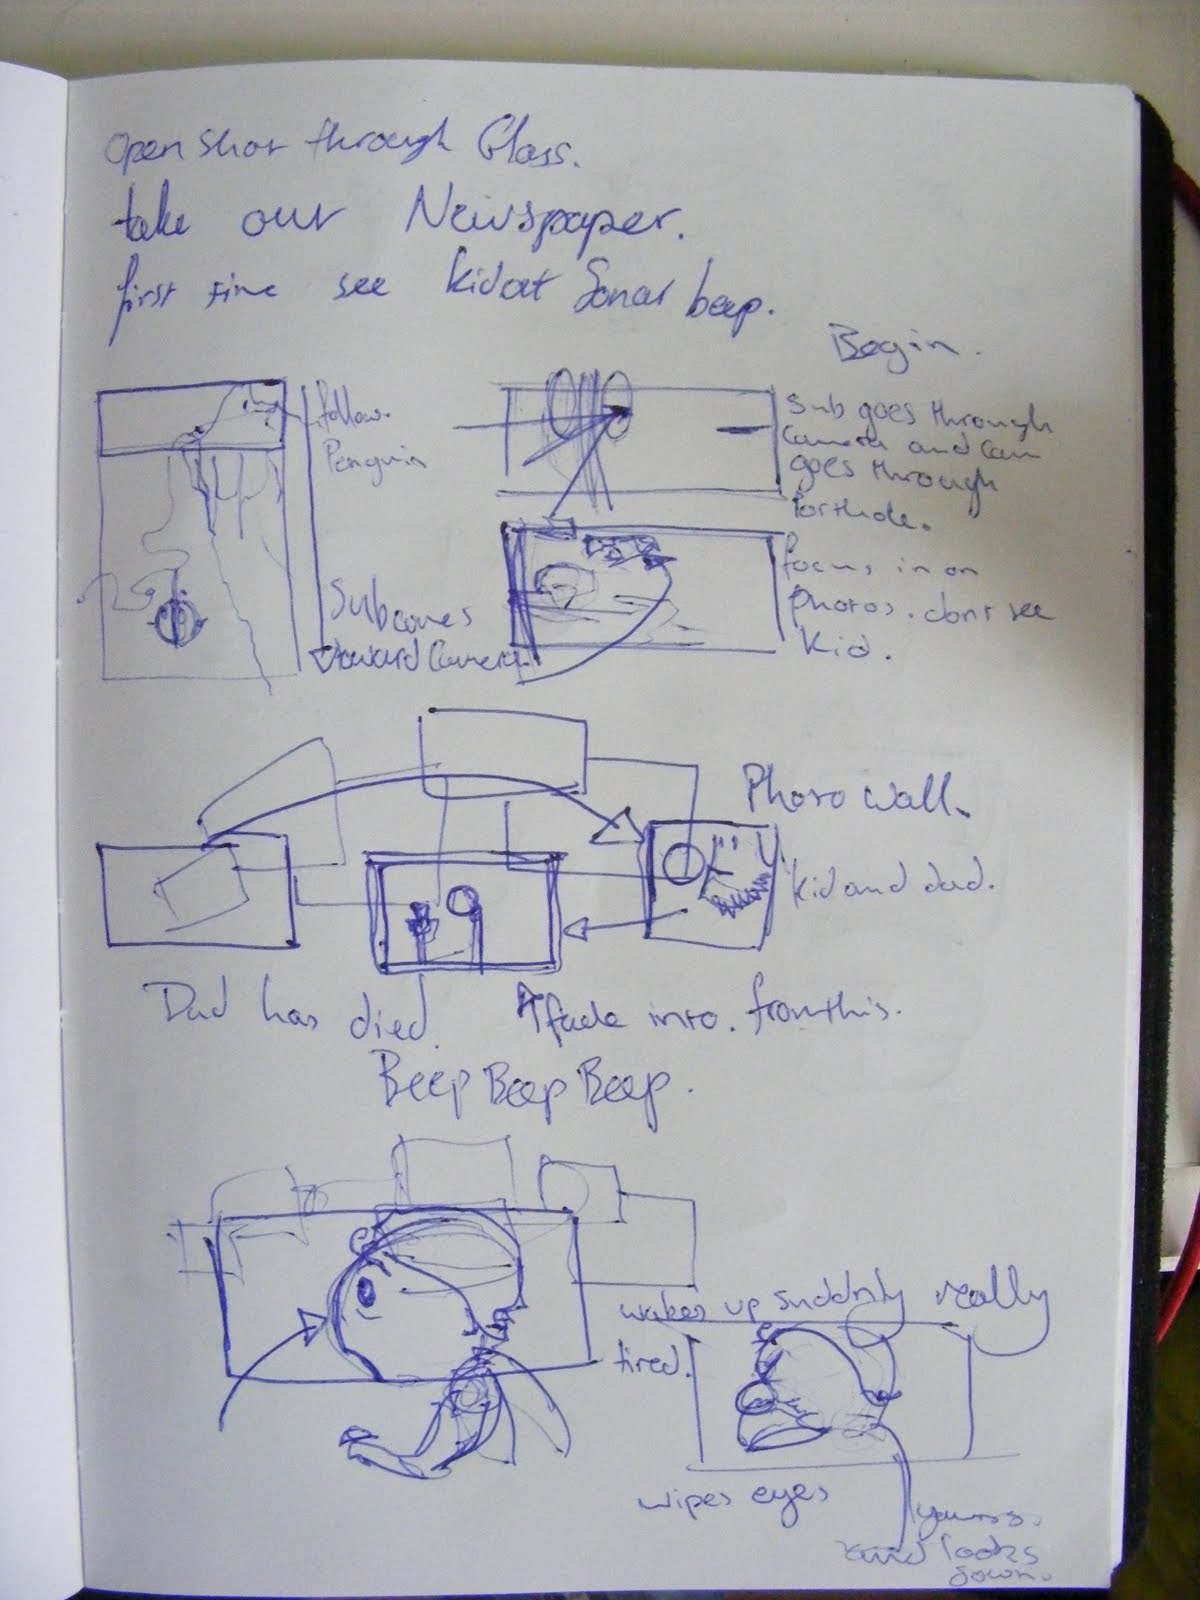 Open Shot through Glass.
take out Newspaper.
first time see kid at Sonar beep.
Begin.
follow
Penguin
Sub comes
toward Camera
Sub goes through
Camera and Cam
goes through
Porthole.
focus in on
photos. dont see
kid.
Photo wall.
kid and dad.
Dad has died.
fade into. from this.
Beep Beep Beep.
wakes up suddnly really
tired.
wipes eyes
yawns.
and looks
down.